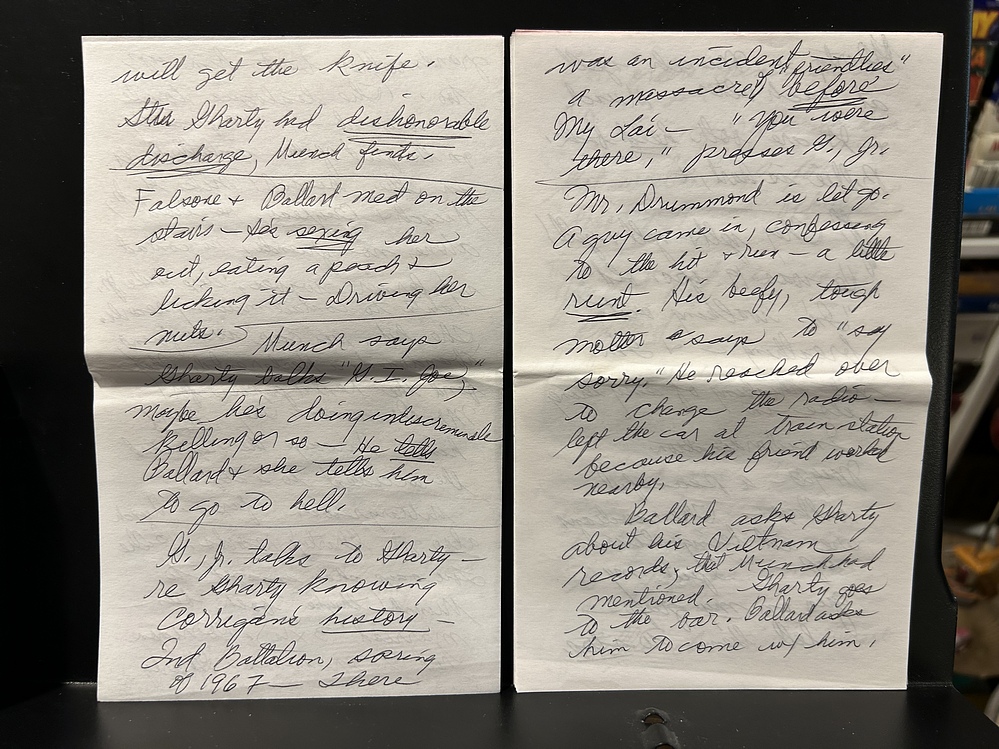 will get the knife.
Gharty had dishonorable
discharge, Munch finds.
Falsone & Ballard meet on the
stairs – He's sexing her
out, eating a peach &
licking it – Driving her
nuts. Munch says
Gharty talks "G.I. Joe,"
maybe he's doing indiscriminate
killing or so – He tells
Ballard & she tells him
to go to hell.
G., Jr. talks to Gharty –
re Gharty knowing
Corrigan's history –
2nd Battalion, spring
of 1967 – There
was an incident, "friendlies"
a massacre, "before"
My Lai – "You were
there," presses G., Jr.
Mr. Drummond is let go.
A guy came in, confessing
to the hit & run – a little
runt. His beefy, tough
mother says to "say
sorry." He reached over
to change the radio –
left the car at train station
because his friend worked
nearby.
Ballard asks Gharty
about his Vietnam
records, that Munch had
mentioned. Gharty goes
to the bar. Ballard asks
him to come w/ him.